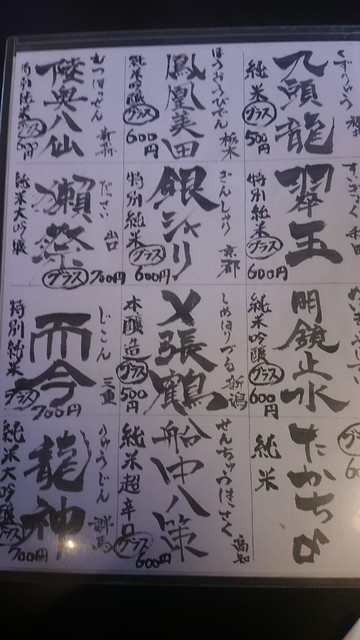 くずりゅう
九頭龍
純米
グラス
500円
翠玉
特別純米
グラス
600円
明鏡止水
純米吟醸
グラス
600円
たかちよ
純米
ほうおうびでん
栃木
鳳凰美田
純米吟醸
グラス
600円
ぎんしゃり
京都
銀シャリ
特別純米
グラス
600円
しめはりづる
新潟
〆張鶴
本醸造
グラス
500円
せんちゅうはっさく
高知
船中八策
純米超辛口
グラス
600円
むつはっせん
陸奥八仙
特別純米
グラス
だっさい
山口
獺祭
純米大吟醸
グラス
700円
じこん
三重
而今
特別純米
グラス
700円
りゅうじん
群馬
龍神
純米大吟醸
グラス
700円